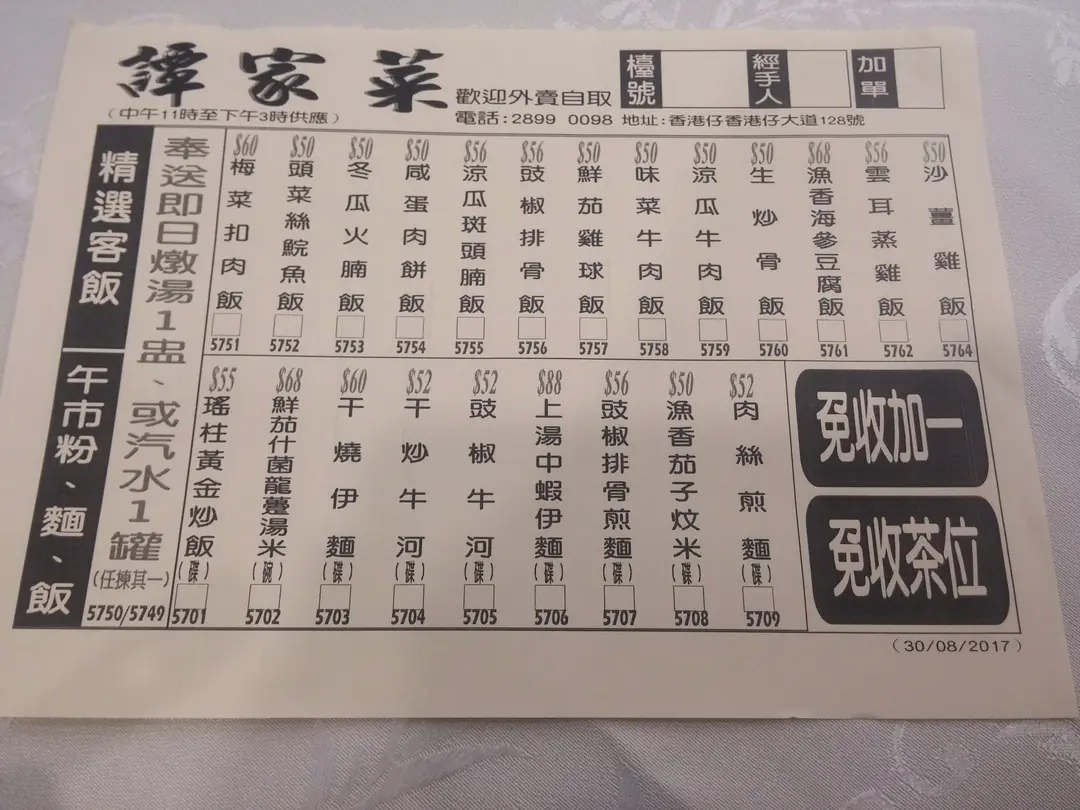 譚家菜
歡迎外賣自取
檯號
經手人
加單
(中午11時至下午3時供應)
電話:2899 0098 地址:香港仔香港仔大道128號
精選客飯
午市粉、麵、飯
奉送即日燉湯1盅、或汽水1罐
(任揀其一)
5750/5749
$60 梅菜扣肉飯 5751
$50 頭菜絲鯇魚飯 5752
$50 冬瓜火腩飯 5753
$50 咸蛋肉餅飯 5754
$56 涼瓜斑頭腩飯 5755
$56 豉椒排骨飯 5756
$50 鮮茄雞球飯 5757
$50 味菜牛肉飯 5758
$50 涼瓜牛肉飯 5759
$50 生炒骨飯 5760
$68 漁香海參豆腐飯 5761
$56 雲耳蒸雞飯 5762
$50 沙薑雞飯 5764
$55 瑤柱黃金炒飯(碟) 5701
$68 鮮茄什菌龍躉湯米(碗) 5702
$60 干燒伊麵(碟) 5703
$52 干炒牛河(碟) 5704
$52 豉椒牛河(碟) 5705
$88 上湯中蝦伊麵(碟) 5706
$56 豉椒排骨煎麵(碟) 5707
$50 漁香茄子炆米(碟) 5708
$52 肉絲煎麵(碟) 5709
免收加一
免收茶位
(30/08/2017)